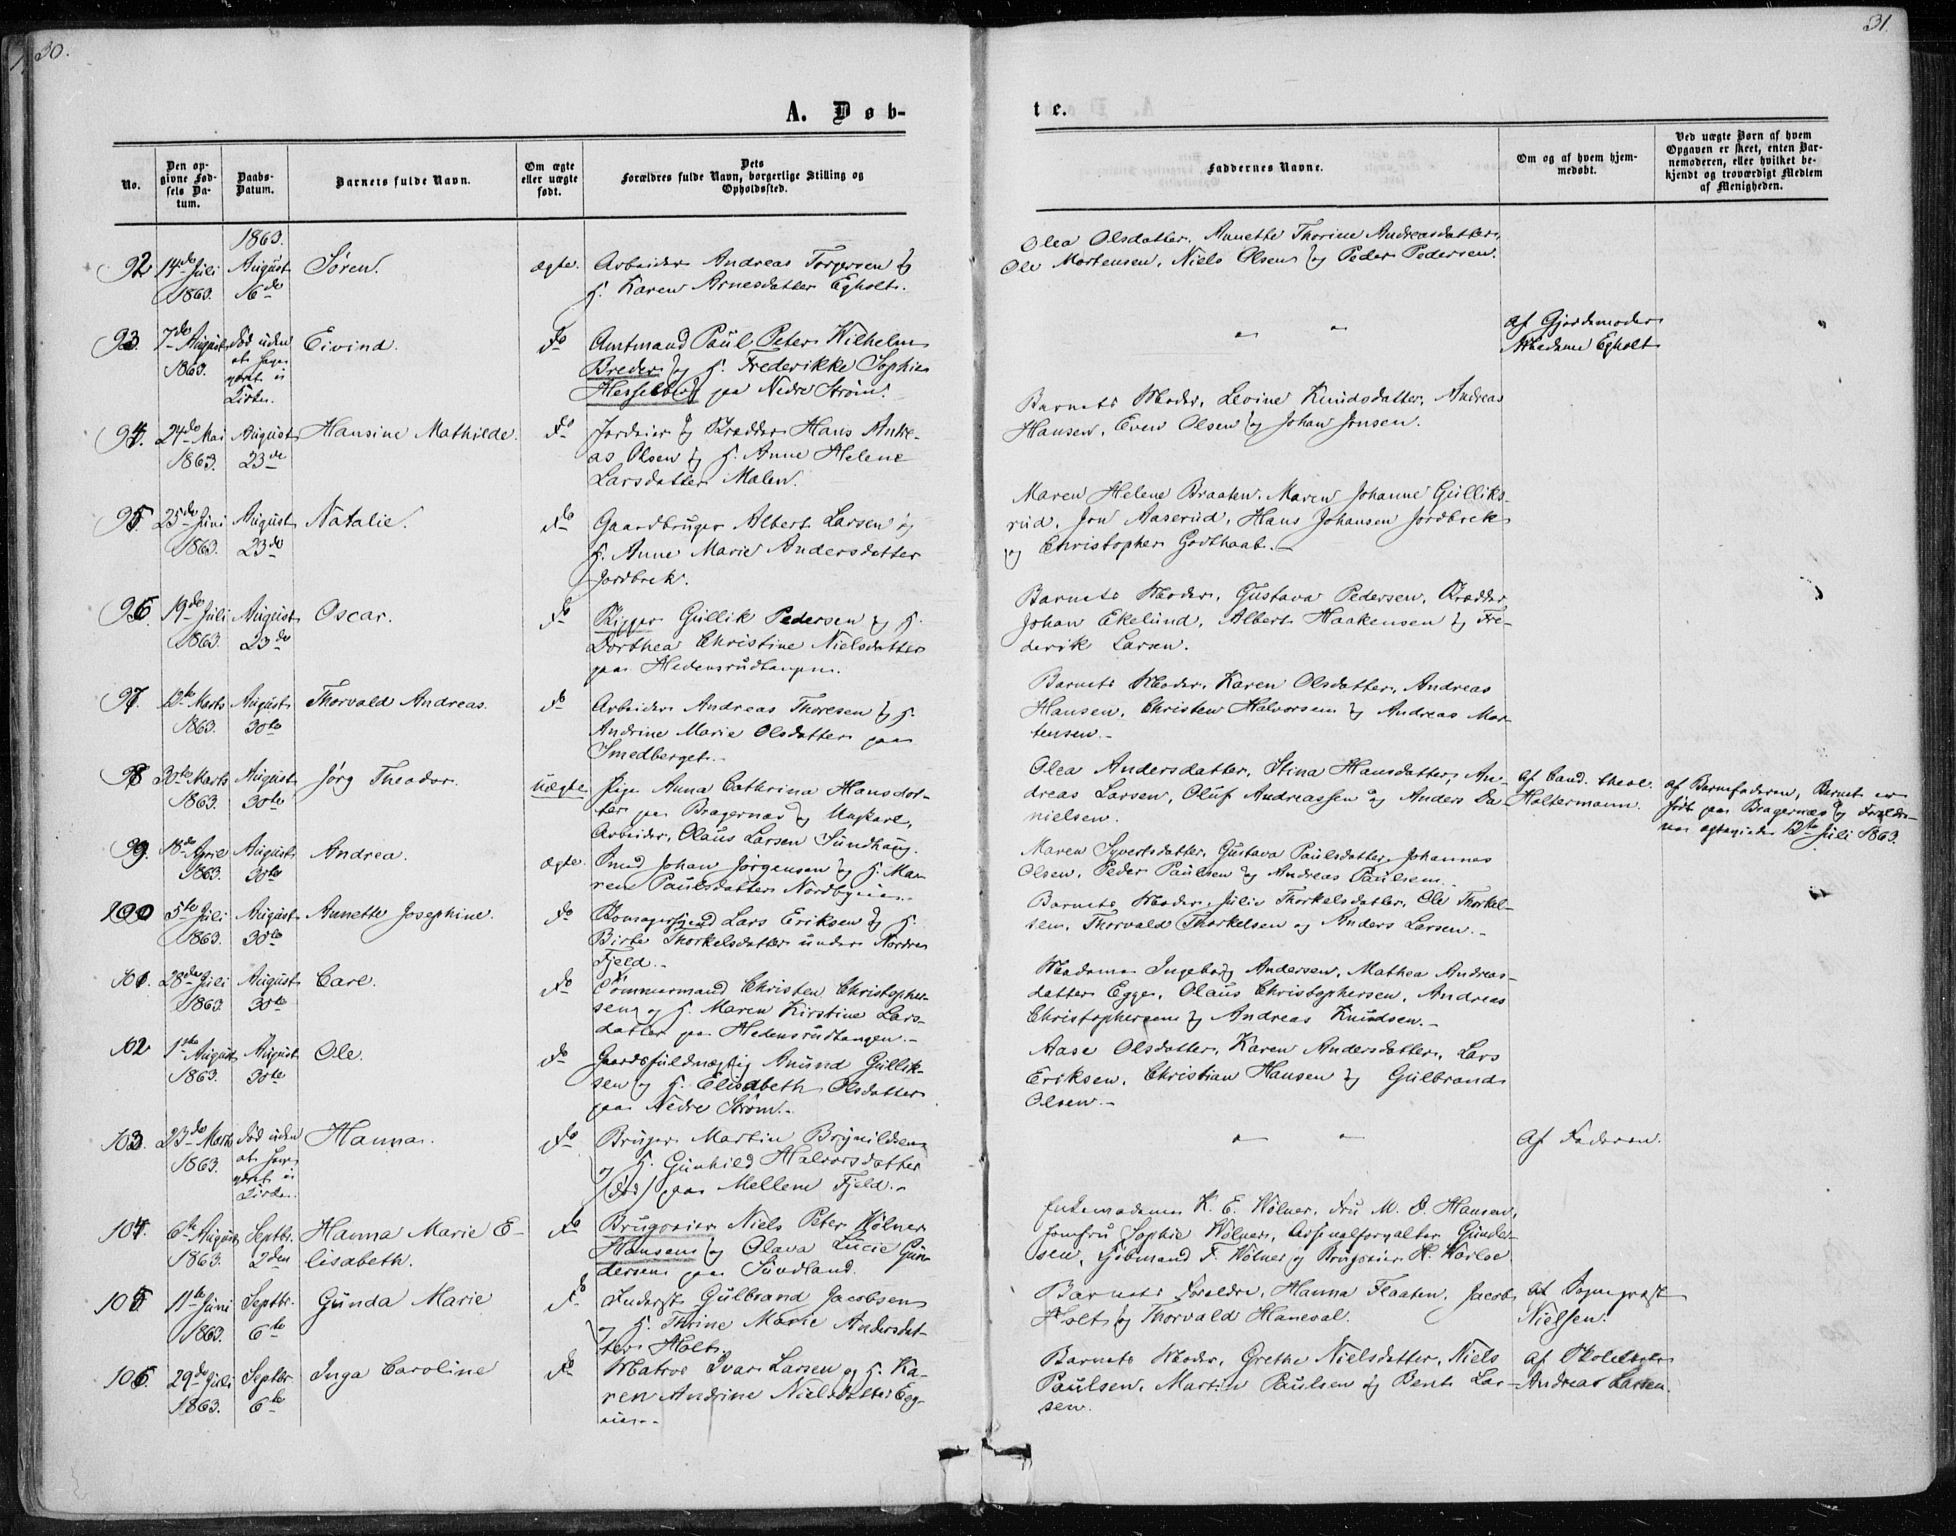 30.
31.
A. Døb-
te.
No.
Den op-
givne Fød-
sels Da-
tum.
Daabs-
Datum.
Barnets fulde Navn.
Om ægte
eller uægte
født.
Dets
Forældres fulde Navn, borgerlige Stilling og
Opholdssted.
Faddernes Navne.
Om og af hvem hjem-
medøbt.
Ved uægte Børn af hvem
Opgaven er skeet, enten Bar-
nemoderen, eller hvilket be-
kjendt og troværdigt Medlem
af Menigheden.
1863.
92 14de Juli August Søren. ægte. Arbeider Andreas Torgersen og
1863. 16de H. Karen Arnesdatter Egholt.
Olea Olsdatter, Annette Thorine Andreasdatter,
Ole Mortensen, Niels Olsen og Peder Pedersen.
93. 7de August død uden Eivind. do Amtmand Paul Peter Wilhelm
1863. at have Breder og H. Frederikke Sophie
været i Hesselberg paa Nedre Strøm.
Kirke.
" "
af Gjordemoder
Madame Egholt
94. 24de Mai August Hansine Mathilde. do Jordeier og Skrædder Hans Anke-
1863. 23de as Olsen og H. Anne Helene
Larsdatter Malen.
Barnets Moder, Levine Knudsdatter, Andreas
Hansen, Even Olsen og Johan Jonsen.
95 25de Juni August Natalie. do Gaardbruger Albert Larsen og
1863. 23de H. Anne Marie Andersdatter
Jordbrek.
Maren Helene Braaten, Maren Johanne Gulliks-
rud, Jon Aaserud, Hans Johansen Jordbrek
og Christopher Godthaab.
96. 19de Juli August Oscar. do Rigger Gullik Pedersen og H.
1863. 23de Dorthea Christine Nielsdatter
paa Hedensrudtangen.
Barnets Moder, Gustava Pedersen, Skrædder
Johan Ekelund, Albert Haakensen og Fre-
derik Larsen.
97. 12te Marts August Thorvald Andreas. do Arbeider Andreas Thoresen og H.
1863. 30te Andrine Marie Olsdatter paa
Smedberget.
Barnets Moder, Karen Olsdatter, Andreas
Hansen, Christen Halvorsen og Andreas Mor-
tensen.
98 30te Marts August Jörg Theodor. uægte. Pige Anna Cathrina Hansdat-
1863. 30te ter paa Bragernæs og Ungkarl,
Arbeider, Olaus Larsen Sundhaug.
Olea Andersdatter, Stina Hansdatter, An-
dreas Larsen, Oluf Andreassen og Anders Da
nielsen.
af Cand. theol.
Holtermann.
af Barnefaderen, Barnet er
født paa Bragernæs og Foreldre-
ne 12te Juli 1863.
99. 18de April August Andrea. ægte. Smed Johan Jørgensen og H. Ma-
1863. 30te ren Paulsdatter Nordbyeien.
Maren Syvertsdatter, Gustava Paulsdatter, Johannes
Olsen, Peder Paulsen og Andreas Paulsen.
100 5te Juli August Annette Josephine. do Lars Eriksen og H.
1863. 30te Birte Thorkelsdatter under Nordre
Fjeld.
Barnets Moder, Julie Thorkelsdatter, Ole Thorkel-
sen, Thorvald Thorkelsen og Anders Larsen.
101. 28de Juli August Carl. do Tømmermand Christen Christopher-
1863. 30te sen og H. Maren Kirstine Lars-
datter paa Hedensrudtangen.
Madame Ingeborg Andersen, Mathea Andreas-
datter Egge, Olaus Christophersen, Andreas
Christophersen og Andreas Knudsen.
102 1ste August August Ole. do Gaardsfuldmægtig Amund Gullik-
1863. 30te sen og H. Elisabeth Olsdatter
paa Nedre Strøm.
Aase Olsdatter, Karen Andersdatter, Lars
Eriksen, Christian Hansen og Gulbrand
Olsen.
103. 23de Marts død uden Hanna. do Bruger Martin Brynildsen
1863. at have og H. Gunhild Halvorsdatter
været i (død) paa Mellem Fjeld.
Kirken.
" "
Af Faderen.
104. 6te August Septbr. Hanna Marie E- do Brugseier Niels Peter Kølner
1863. 2den lisabeth. Hansen og Olava Lucie Gun
dersen paa Sundland.
Enkemadame K. E. Kølner, Fru M. O. Hansen,
Jomfru Sophie Kølner, Arsenalforvalter Gunder-
sen, Kjøbmand F. Kølner og Brugseier H. Kiøsloe.
105 11te Juni Septbr. Gunda Marie do Inderst Gulbrand Jacobsen
1863. 6te og H. Thrine Marie Andersdat-
ter Holt.
Barnets Forældre, Hanna Flaaten, Jacob
Holt og Thorvald Haneval.
af Sogneprest
Nielsen.
106. 29de Juli Septbr. Inga Caroline do Matros Ivar Larsen og H. Ka-
1863. 6te ren Andrine Nielsdatter Eeg-
Barnets Moder, Grethe Nielsdatter, Niels
Paulsen, Martin Paulsen og Bent Lar-
sen.
af Skoleholder
Andreas Larsen.